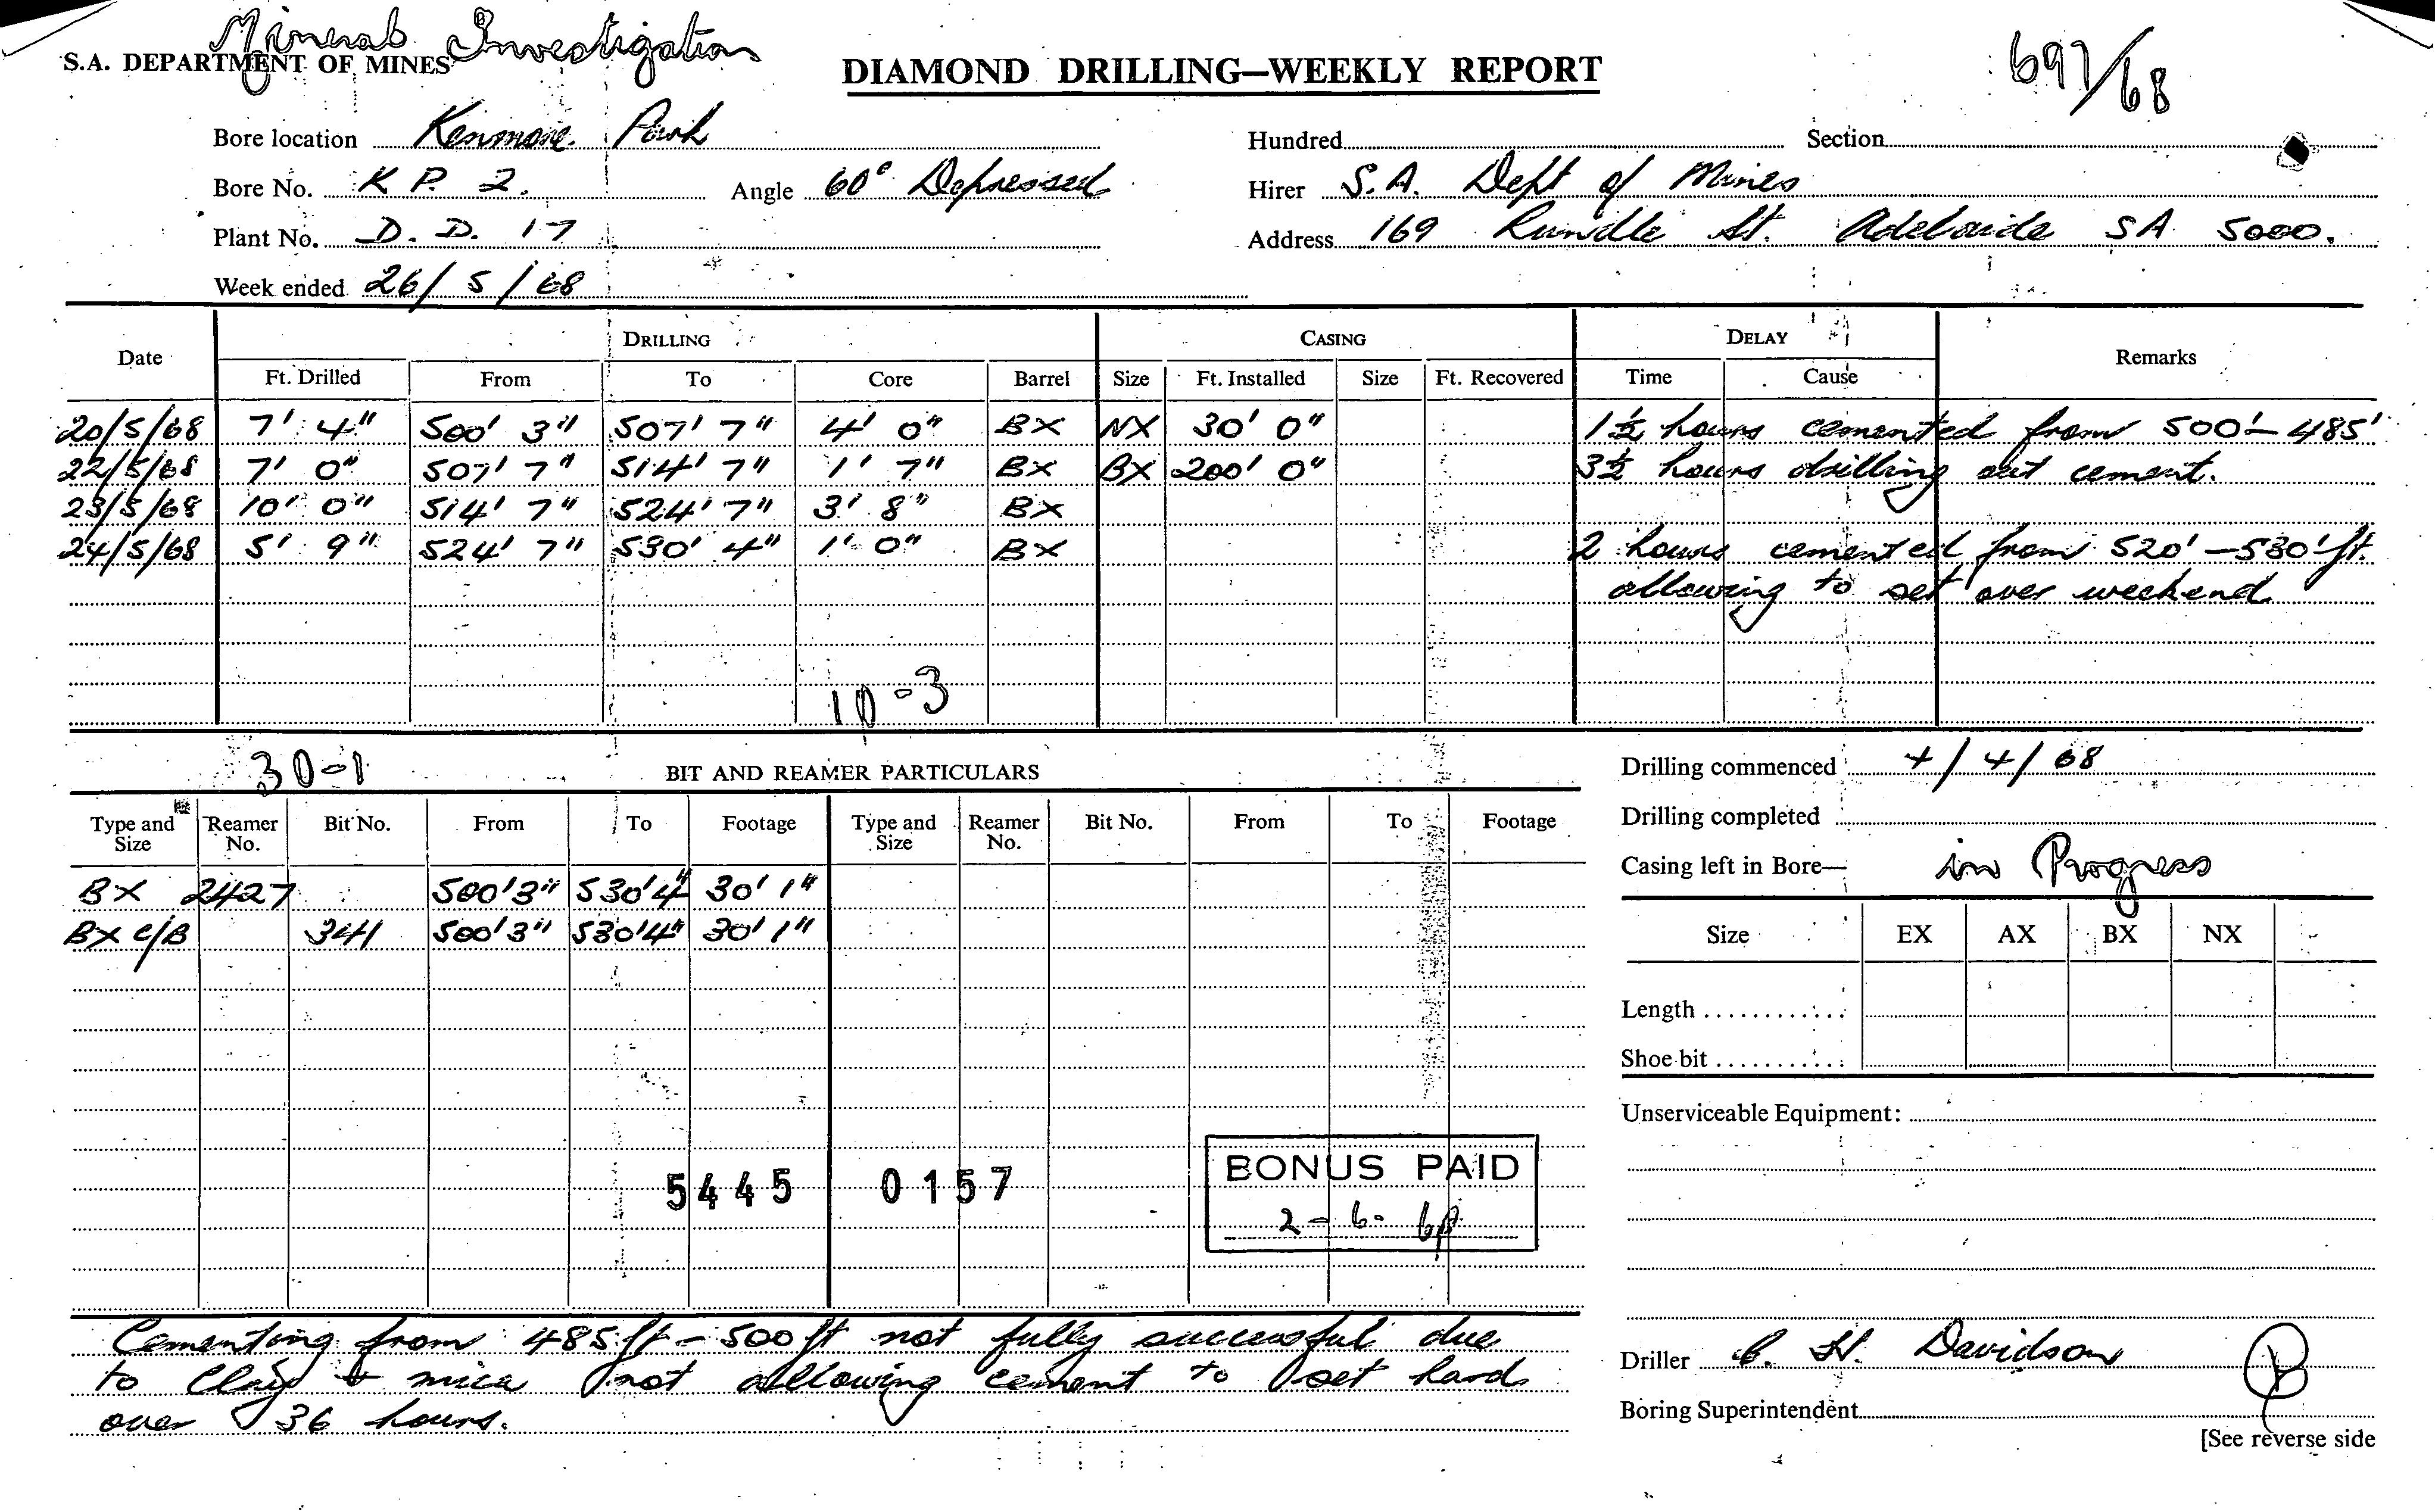 Minerals Investigation
S.A. DEPARTMENT OF MINES
DIAMOND DRILLING—WEEKLY REPORT
697/68
Bore location Kenmore Park
Hundred Section
Bore No. K P. 2. Angle 60° Depressed
Hirer S.A. Dept of Mines
Plant No. D. D. 17
Address 169 Rundle St. Adelaide SA 5000.
Week ended 26/5/68
Date DRILLING CASING DELAY Remarks
Ft. Drilled From To Core Barrel Size Ft. Installed Size Ft. Recovered Time Cause
20/5/68 7' 4" 500' 3" 507' 7" 4' 0" BX NX 30' 0" 1½ hours cemented from 500'-485'
22/5/68 7' 0" 507' 7" 514' 7" 1' 7" BX BX 200' 0" 3½ hours drilling out cement.
23/5/68 10' 0" 514' 7" 524' 7" 3' 8" BX
24/5/68 5' 9" 524' 7" 530' 4" 1' 0" BX 2 hours cemented from 520'-530' ft.
allowing to set over weekend
10-3
30-1
BIT AND REAMER PARTICULARS
Type and Size Reamer No. Bit No. From To Footage Type and Size Reamer No. Bit No. From To Footage
BX 2427 500'3" 530'4" 30'1"
BX C/B 341 500'3" 530'4" 30'1"
5445 0157
BONUS PAID
2-6-68
Cementing from 485ft - 500ft not fully successful due
to Clay & mica not allowing cement to set hard
over 36 hours.
Drilling commenced 4/4/68
Drilling completed
Casing left in Bore— in Progress
Size EX AX BX NX
Length ............
Shoe bit ...........
Unserviceable Equipment:
Driller H. Davidson
Boring Superintendent
[See reverse side